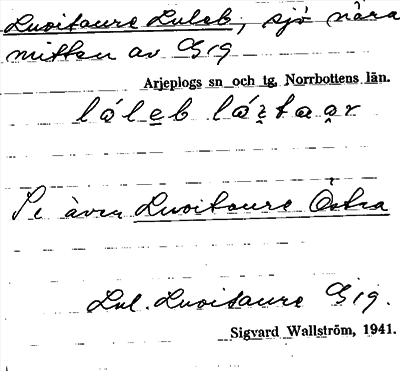 Luoitaure Luleb, sjö nära
mitten av Gig
Arjeplogs sn och tg, Norrbottens län.
láleb
Se även Luoitaure Östra
Lul. Luoitaure Gig.
Sigvard Wallström, 1941.